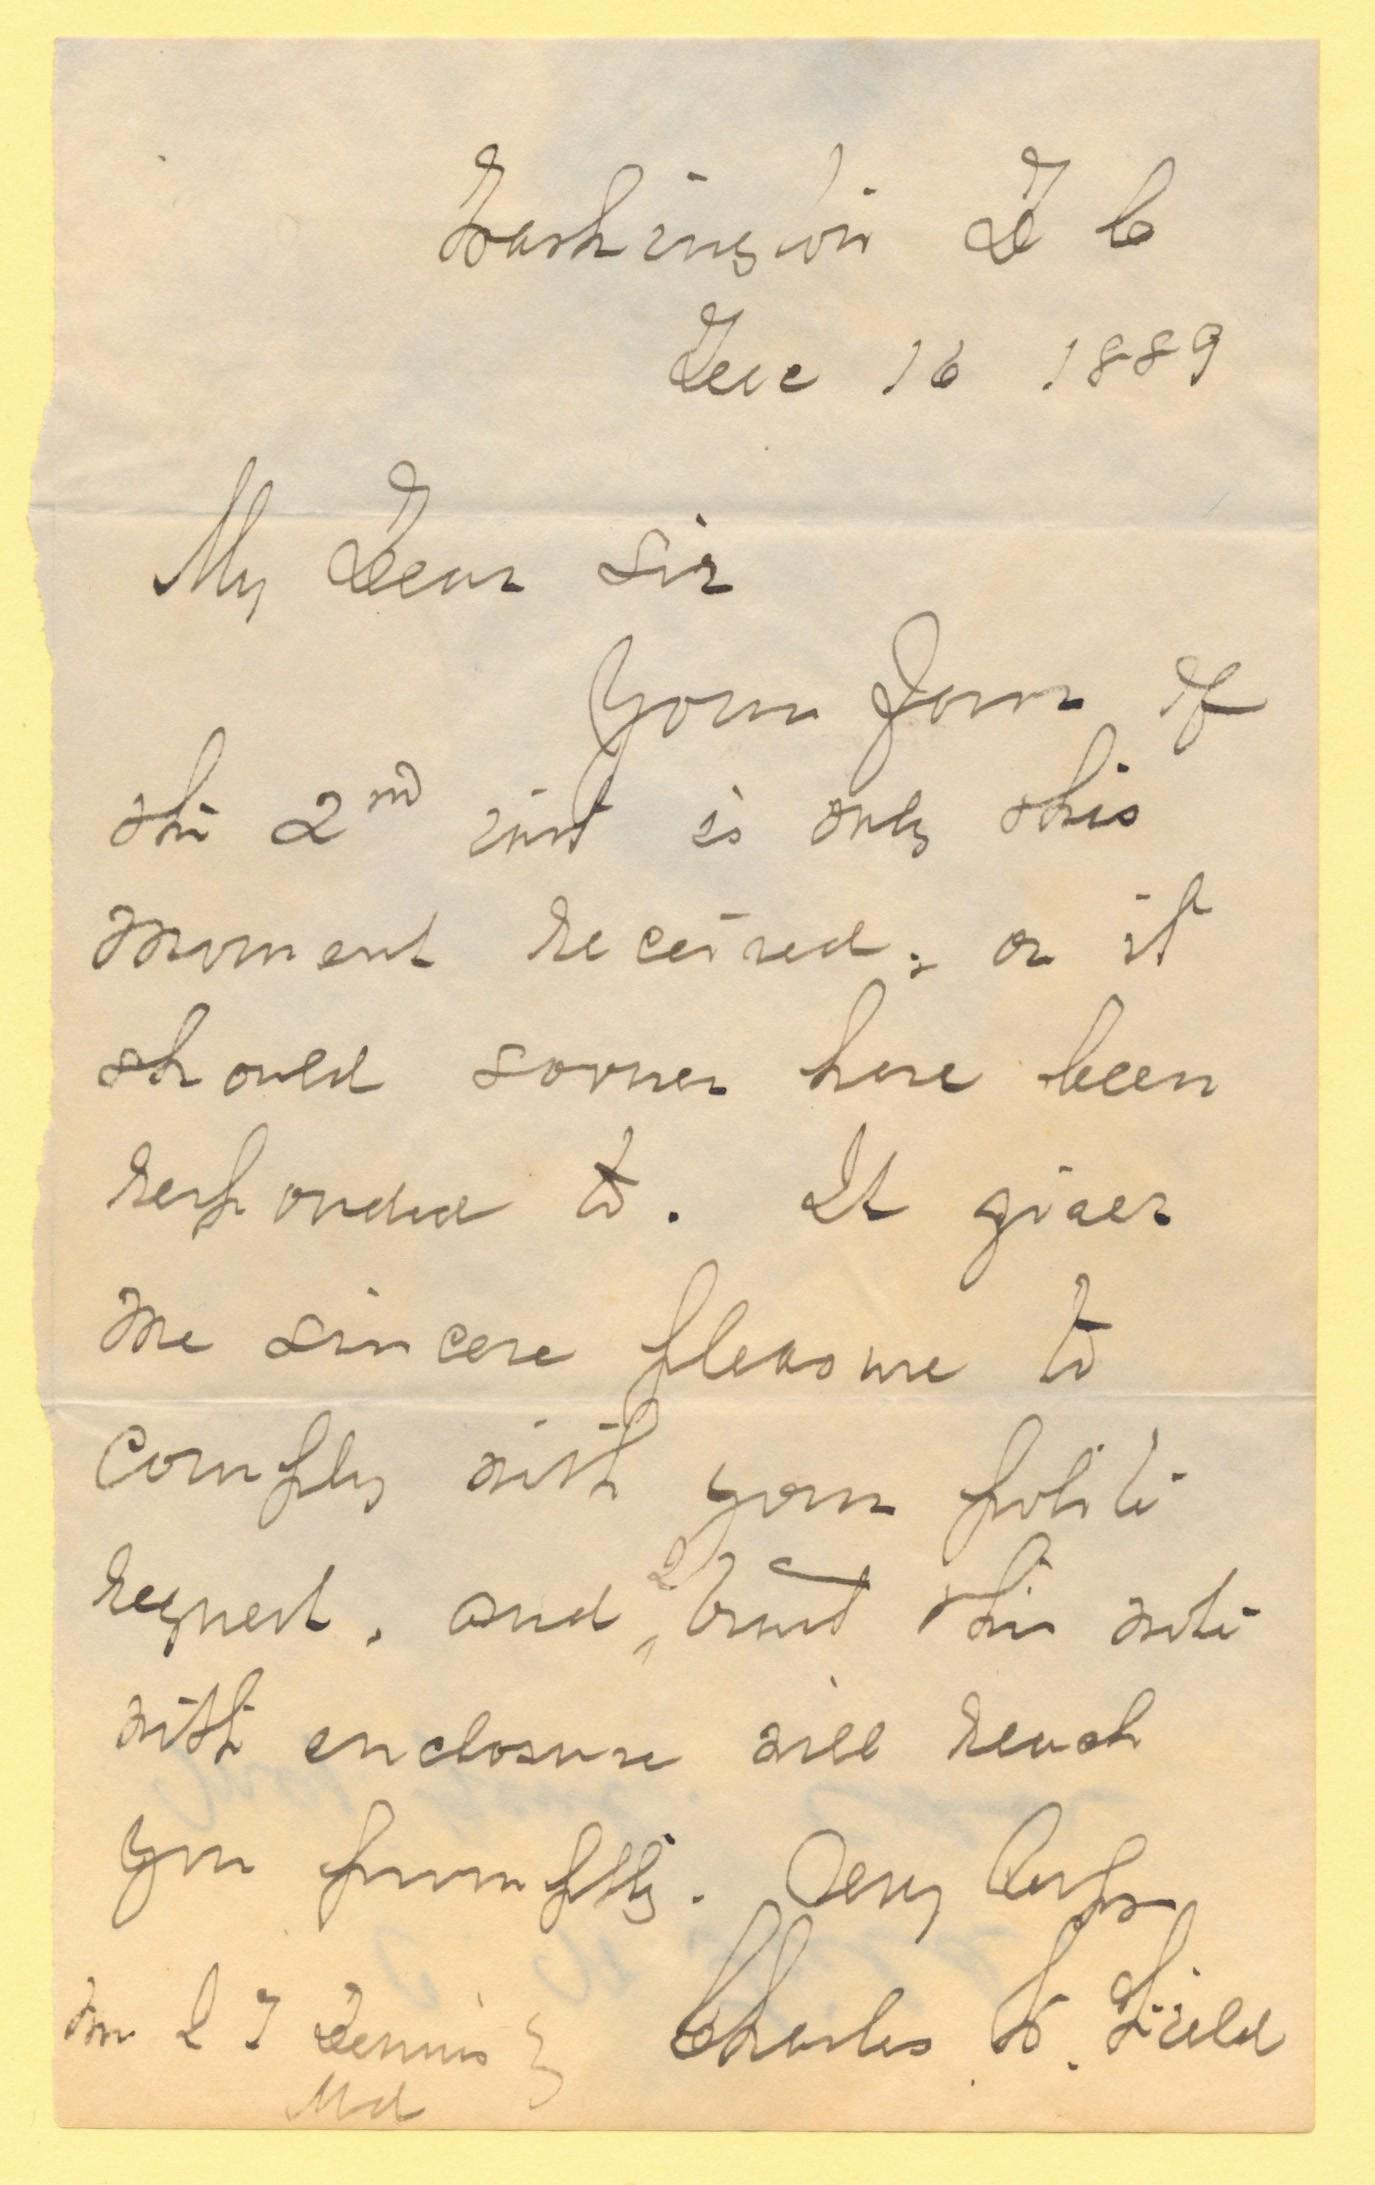 Washington D C
Dec 16 1889
My Dear Sir
Your favor of
the 2nd inst is only this
moment received, or it
should sooner have been
responded to. It gives
me sincere pleasure to
comply with your polite
request, and I trust this note
with enclosure will reach
you promptly. Very Resply
Charles W. Field
Dennis
Md